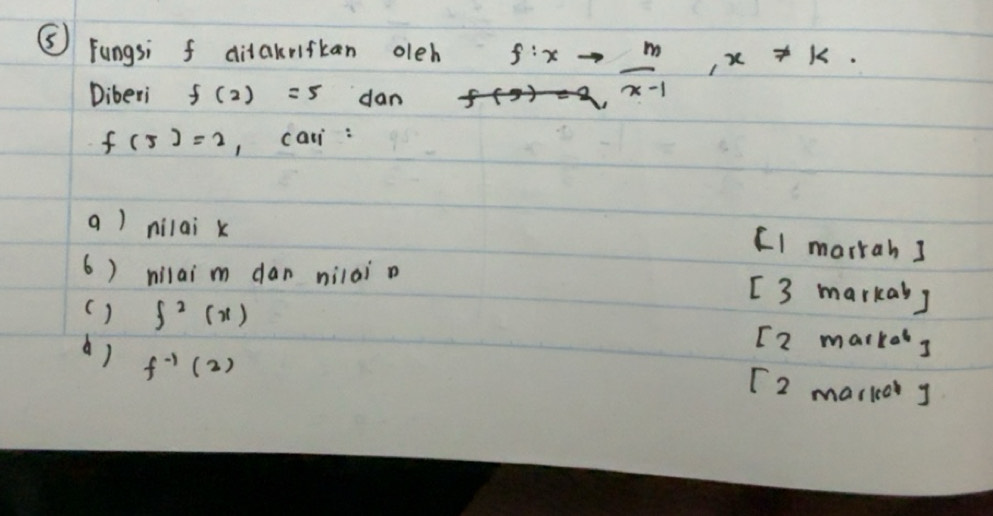 5 Fungsi f ditakrifkan oleh f : x → m/x-1 , x ≠ k .
Diberi f (2) = 5 dan f (5) = 2,
f (5) = 2, cari :
a) nilai k [1 markah]
b) nilai m dan nilai n [3 markah]
c) f² (x) [2 markah]
d) f⁻¹ (2) [2 markah]